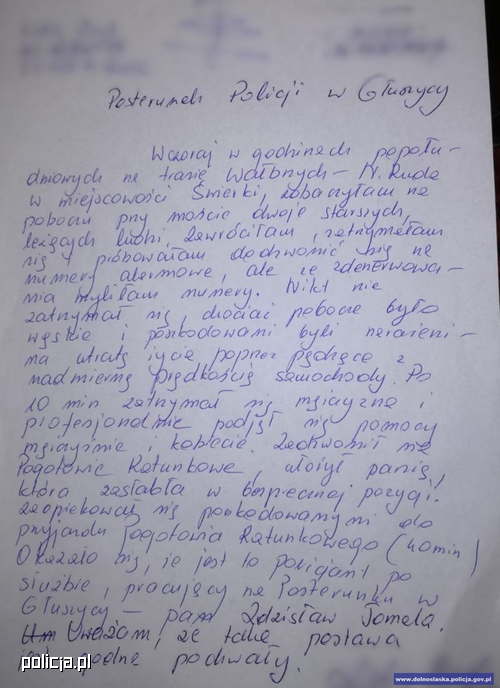 Posterunek Policji w Głuszycy
Wczoraj w godzinach popołu-
dniowych na trasie Wałbrzych - N. Ruda
w miejscowości Świerki, zobaczyłam na
poboczu przy moście dwoje starszych,
leżących ludzi. Zawróciłam, zatrzymałam
się i próbowałam dodzwonić się na
numery alarmowe, ale ze zdenerwowa-
nia myliłam numery. Nikt nie
zatrzymał się, chociaż pobocze było
wąskie i poszkodowani byli narażeni -
na utratę życia poprzez pędzące z
nadmierną prędkością samochody. Po
10 min zatrzymał się mężczyzna i
profesjonalnie podjął się pomocy
mężczyźnie i kobiecie. Zadzwonił na
Pogotowie Ratunkowe, ułożył panią,
która zasłabła w bezpiecznej pozycji,
zaopiekował się poszkodowanymi do
przyjazdu Pogotowia Ratunkowego (40min)
Okazało się, że jest to policjant po
służbie, pracujący na Posterunku w
Głuszycy - pan Zdzisław Tomela.
Uważam, że taka postawa
jest godna pochwały.
policja.pl
www.dolnoslaska.policja.gov.pl